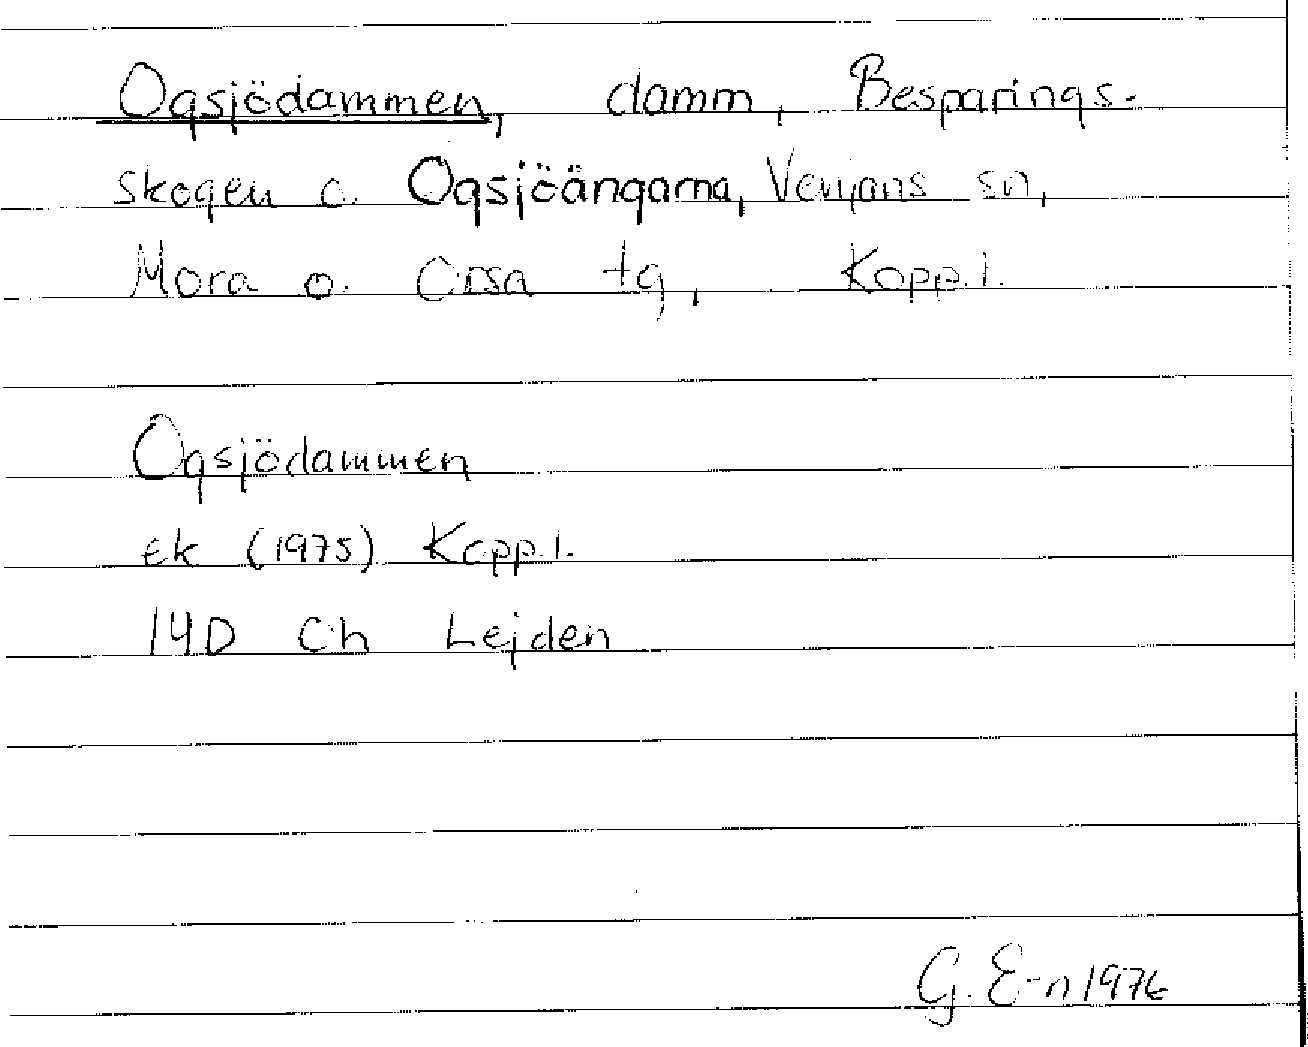 Ogsjödammen, damm, Besparings-
skogen o. Ogsjöängarna, Venjans sn,
Mora o. Orsa tg, Kopp.l.
Ogsjödammen
ek (1975) Kopp.l.
14D Ch Lejden
G. E-n 1976